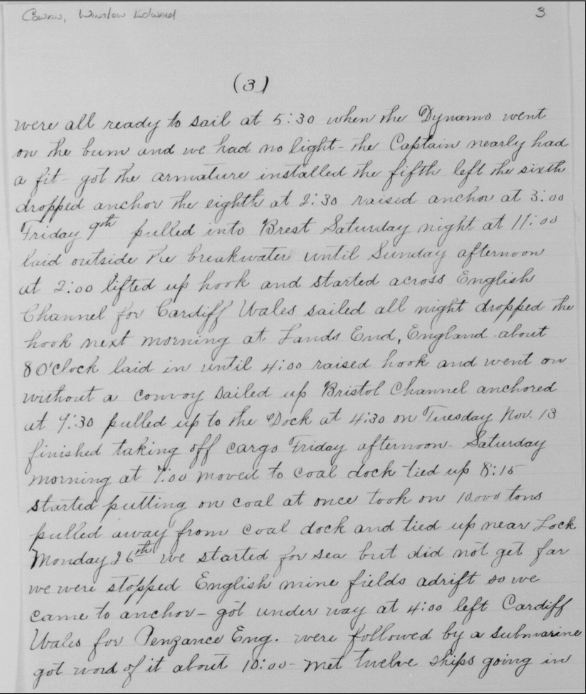 Cowin, Winslow Edward 3
(3)
were all ready to sail at 5:30 when the Dynamo went
on the bum and we had no light - the Captain nearly had
a fit - got the armature installed the fifth left the sixth
dropped anchor the eighth at 2:30 raised anchor at 3:00
Friday 9th pulled into Brest Saturday night at 11:00
laid outside the breakwater until Sunday afternoon
at 2:00 lifted up hook and started across English
Channel for Cardiff Wales sailed all night dropped the
hook next morning at Lands End, England about
8 O'Clock laid in until 4:00 raised hook and went on
without a convoy sailed up Bristol Channel anchored
at 7:30 pulled up to the Dock at 4:30 on Tuesday Nov. 13
finished taking off cargo Friday afternoon - Saturday
morning at 7:00 moved to coal dock tied up 8:15
started putting on coal at once took on 10000 tons
pulled away from coal dock and tied up near Lock
Monday 26th we started for sea but did not get far
we were stopped English mine fields adrift so we
came to anchor - got under way at 4:00 left Cardiff
Wales for Penzance Eng. were followed by a submarine
got word of it about 10:00 - met twelve ships going in